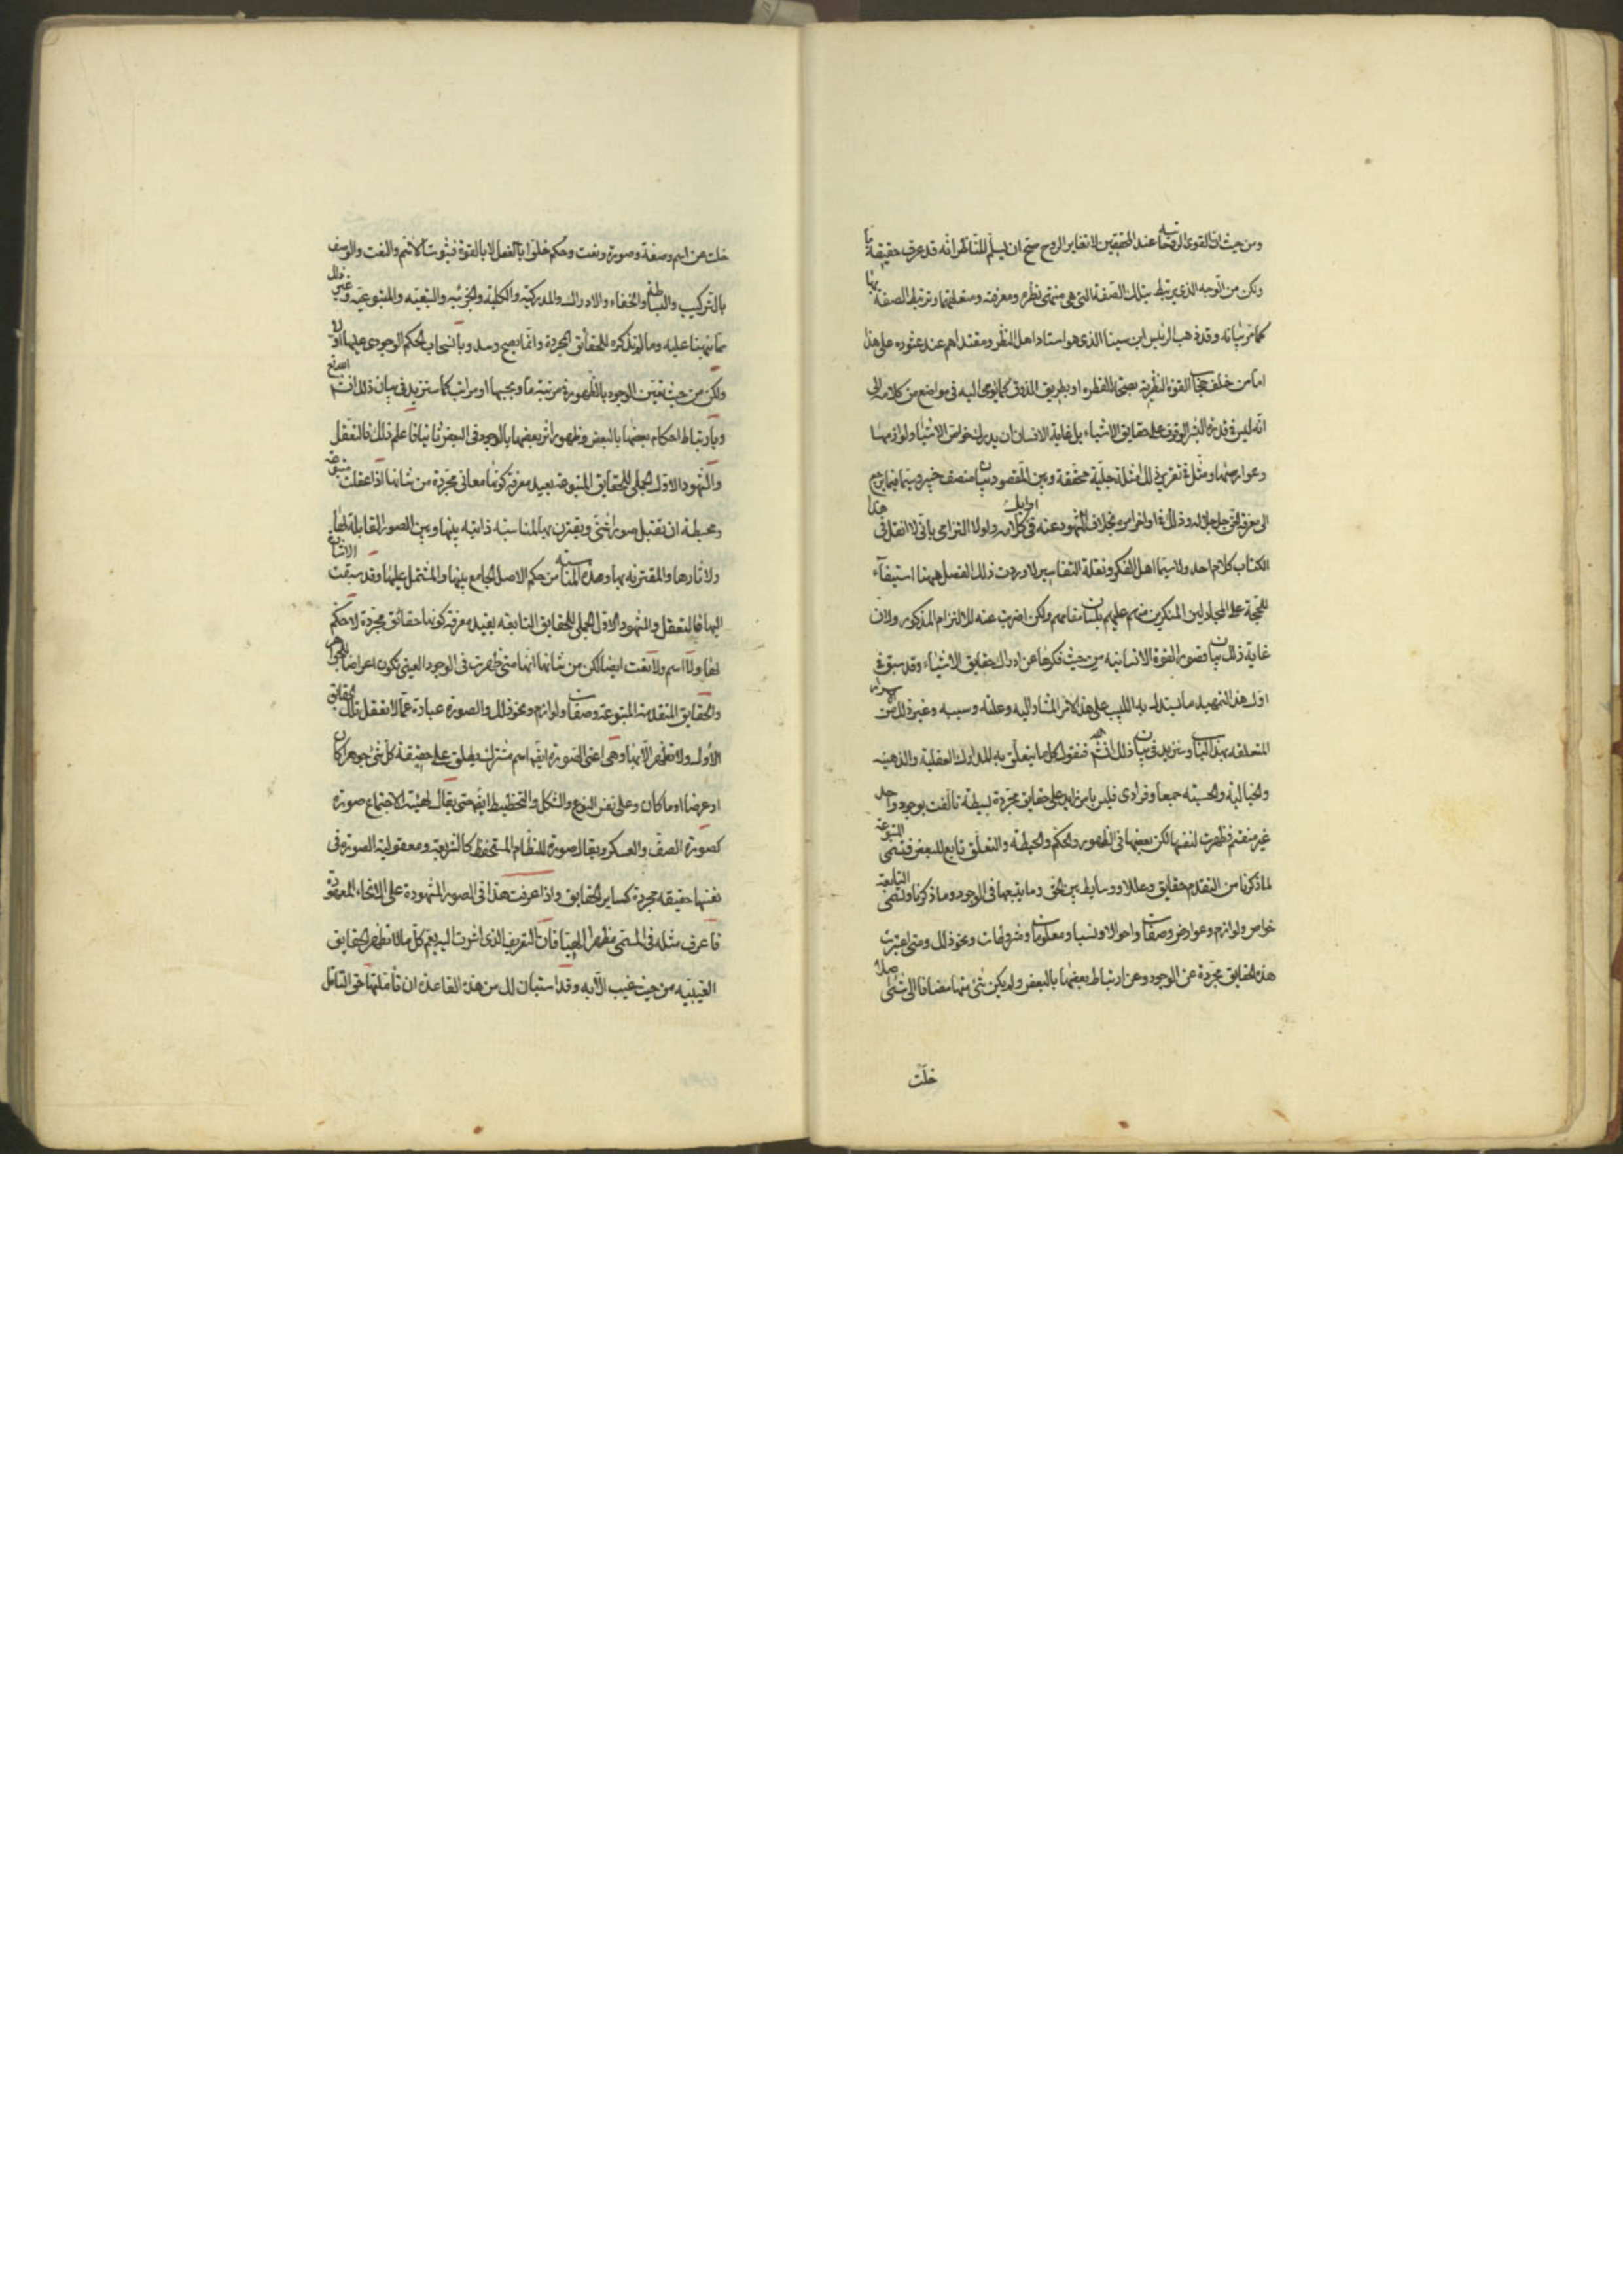 ومن حيث ان القوى الروحانية عند المحققين لا تغاير الروح صح ان يسلم للناظر انه قد عرف حقيقة ما
ولكن من الوجه الذي يرتبط بتلك الصفة التي هي منتهى نظره ومعرفته ومتعلقهما وترتبط الصفة بها
كما مر بيانه وقد ذهب الرئيس ابن سينا الذي هو استاد اهل النظر ومقتداهم عند عثوره على هذا
اما من خلف حجاب القوة النظرية بصحة الفطرة او بطريق الذوق كما يومي اليه في مواضع من كلامه الى
انه ليس في قدرة البشر الوقوف على حقايق الاشياء بل غاية الانسان ان يدرك خواص الاشياء ولوازمها
وعوارضها ومثل في تقرير ذلك امثلة جلية محققة وبين المقصود بيان منصف خبير وسيما فيما يرجع
الى معرفة الحق جل جلاله وذلك في اواخر امره بخلاف المشهود عنه في اوايل كلامه ولولا التزامي باني لا انقل في هذا
الكتاب كلام احد ولا سيما اهل الفكر ونقلة التفاسير لاوردت ذلك الفصل ههنا استيفآء
للحجة على المجادلين المنكرين منهم عليهم بلسان مقامهم ولكن اضربت عنه للالتزام المذكور ولان
غاية ذلك بيان قصور القوة الانسانية من حيث فكرها عن ادراك حقايق الاشياء وقد سبق في
اول هذا التمهيد ما يستدل به اللبيب على هذا الامر المشار اليه وعلته وسببه وغير ذلك من الاسرار
المتعلقة بهذا الباب وسنزيد في بيان ذلك ان شاء الله فنقول كل ما يتعلق به المدارك العقلية والذهنية
والخيالية والحسية جميعا وفرادى فليس بامر زايد على حقايق مجردة بسيطة تالفت بوجود واحد
غير منقسم فظهرت لنفسها لكن بعضها في الظهور والحكم والحيطة والتعلق تابع للبعض فتسمى المتبوعة
لما ذكرنا من التقدم حقايق وعللا ووسايط بين الحق وما يتبعها في الوجود وما ذكرنا وتسمى التابعة
خواص ولوازم وعوارض وصفات واحوالا ونسبا ومعلومات ومشروطات ونحو ذلك ومتى اعتبرت
هذه الحقايق مجردة عن الوجود وعن ارتباط بعضها بالبعض ولم يكن شئ منها مضافا الى شئ اصلا
خلت
خلت عن اسم وصفة وصورة ونعت وحكم خلوا بالفعل لا بالقوة فثبوت الاسم والنعت والوصف
بالتركيب والبساطة والخفاء والادراك والمدركية والكلية والجزئية والتبعية والمتبوعية وغير ذلك
مما نبهنا عليه وما لم نذكره للحقائق المجردة وانما يصح وسد وبانسحاب الحكم الوجودي عليها اولا
ولكن من حيث تعين الوجود بالظهور في مرتبة ما وبحسبها او مراتب كما سنزيد في بيان ذلك ان شاء الله تع
وبارتباط احكام بعضها بالبعض وظهور اثر بعضها بالوجود في البعض ثانيا فاعلم ذلك فالتعقل
والشهود الاول الجملي للحقايق المتبوعة يفيد معرفة كونها معاني مجردة من شانها اذا عقلت متبوعة
ومحيطة ان تقبل صورا شتى ويقترن بها لمناسبة ذاتية بينها وبين الصور القابلة لها
ولاثارها والمقترنة بها وهذه المناسبة من حكم الاصل الجامع بينها والمشتمل عليها وقد سبقت الاشارة
اليها فالتعقل والشهود الاول الجملي للحقايق التابعة يفيد معرفة كونها حقائق مجردة لا حكم
لها ولا اسم ولا نعت ايضا لكن من شانها انها متى ظهرت في الوجود العيني تكون اعراضا للجواهر
والحقايق المتقدمة المتبوعة وصفات ولوازم ونحو ذلك والصورة عبارة عما لا تعقل تلك الحقايق
الاول ولا تظهر الا بها وهي اعني الصورة ايضا اسم مشترك يطلق على حقيقة كل شئ جوهرا كان
او عرضا او ما كان وعلى نفس النوع والشكل والتخطيط ايضا حتى يقال لهيئة الاجتماع صورة
كصورة الصف والعسكر ويقال صورة للنظام المستحفظ كالشريعة ومعقولية الصورة في
نفسها حقيقة مجردة كساير الحقايق واذا عرفت هذا في الصور المشهودة على الانحاء المعهودة
فاعرف مثله في المسمى مظهرا الهيا فان التعريف الذي اشرت اليه يعم كل ما لا تظهر الحقايق
الغيبية من حيث هي غيب الا به وقد استبان لك من هذه القاعدة ان تاملتها حق التامل